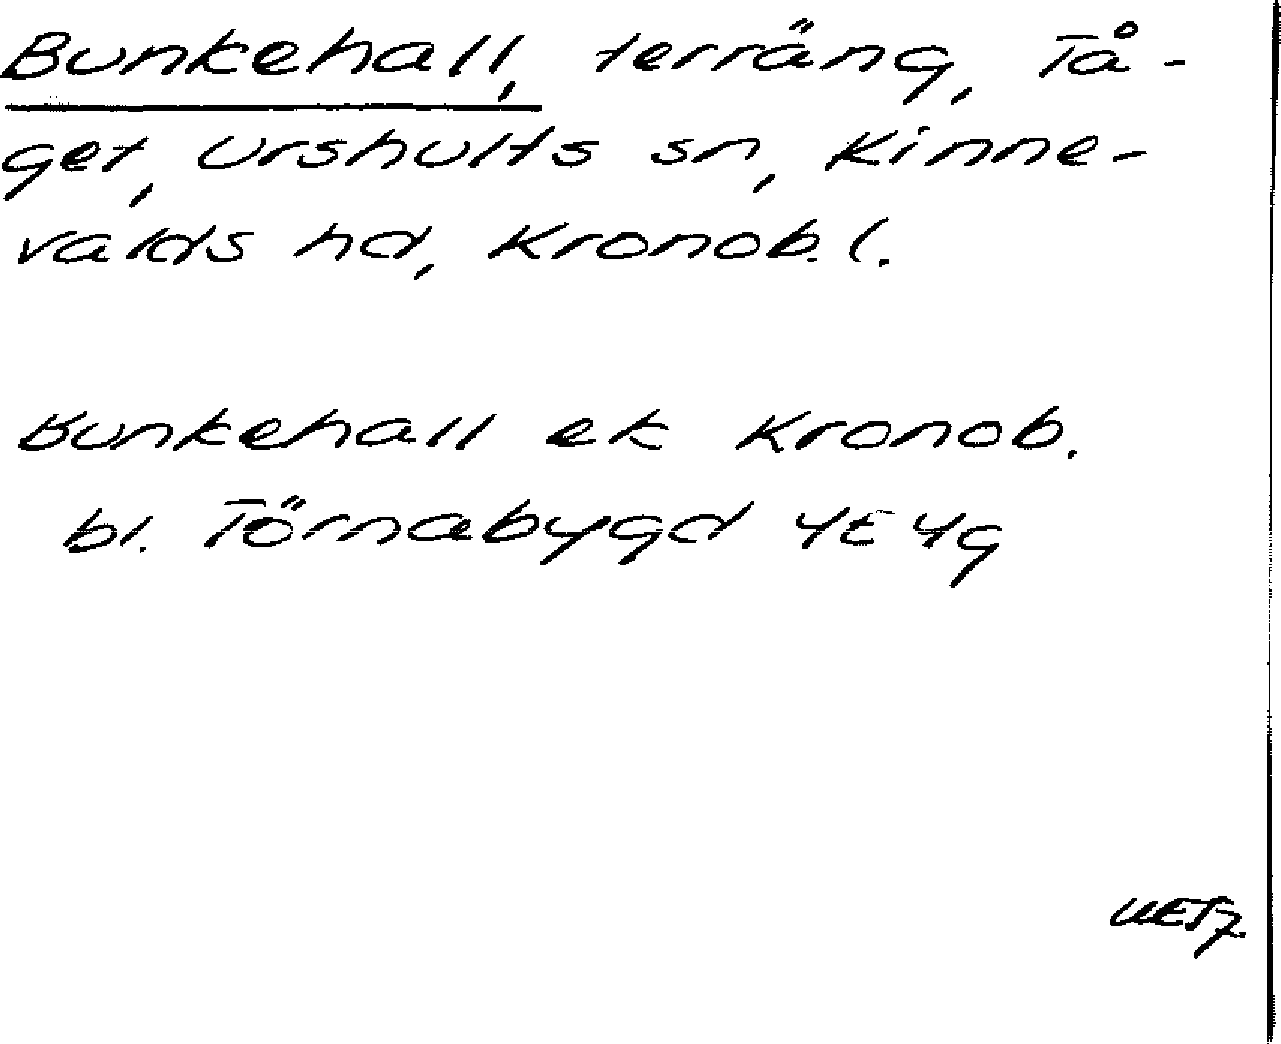 Bunkehall, terräng, Tå-
get, Urshults sn, Kinne-
valds hd, Kronob. l.
Bunkehall ek Kronob.
bl. Törnabygd 4E 4g